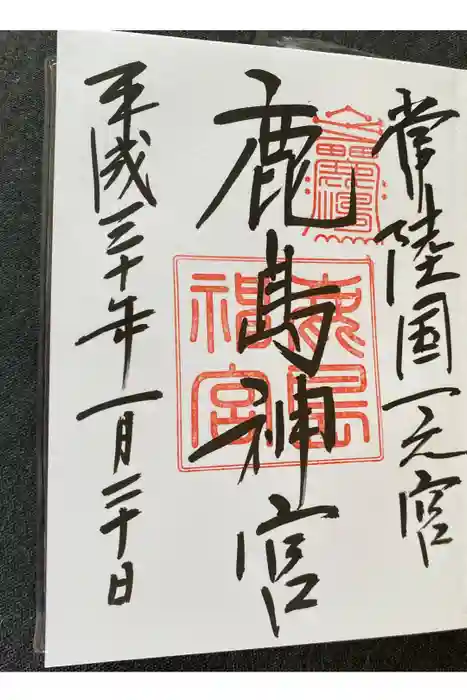 常陸国一之宮
鹿島神宮
鹿島神宮
平成三十年一月二十日